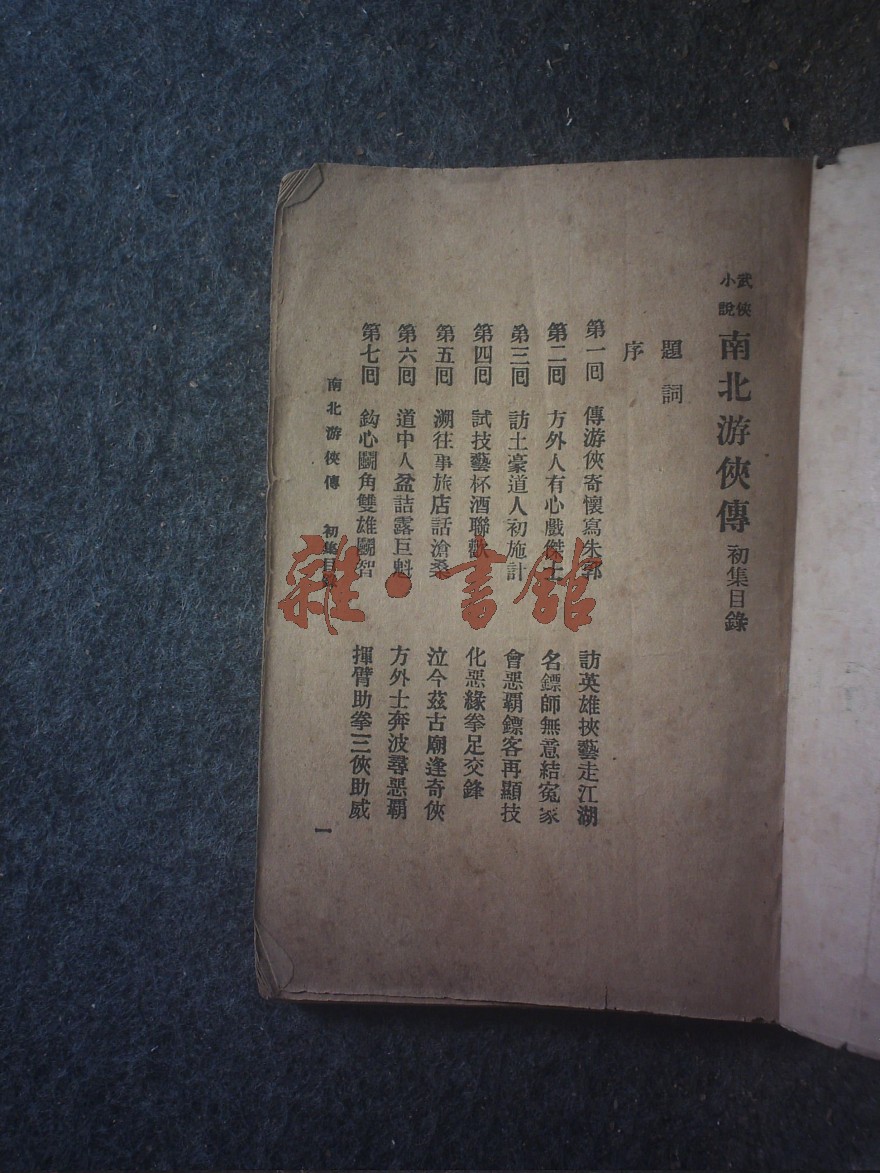 武俠小說 南北游俠傳 初集目錄
題詞
序
第一囘 傳游俠寄懷寫朱郭 訪英雄挾藝走江湖
第二囘 方外人有心戲傑士 名鏢師無意結寃家
第三囘 訪土豪道人初施計 會惡霸鏢客再顯技
第四囘 試技藝杯酒聯歡 化惡緣拳足交鋒
第五囘 溯往事旅店話滄桑 泣今茲古廟逢奇俠
第六囘 道中人盆詰露巨魁 方外士奔波尋惡霸
第七囘 鈎心鬭角雙雄鬭智 揮臂助拳三俠助威
南北游俠傳 初集目錄 一
雜·書館